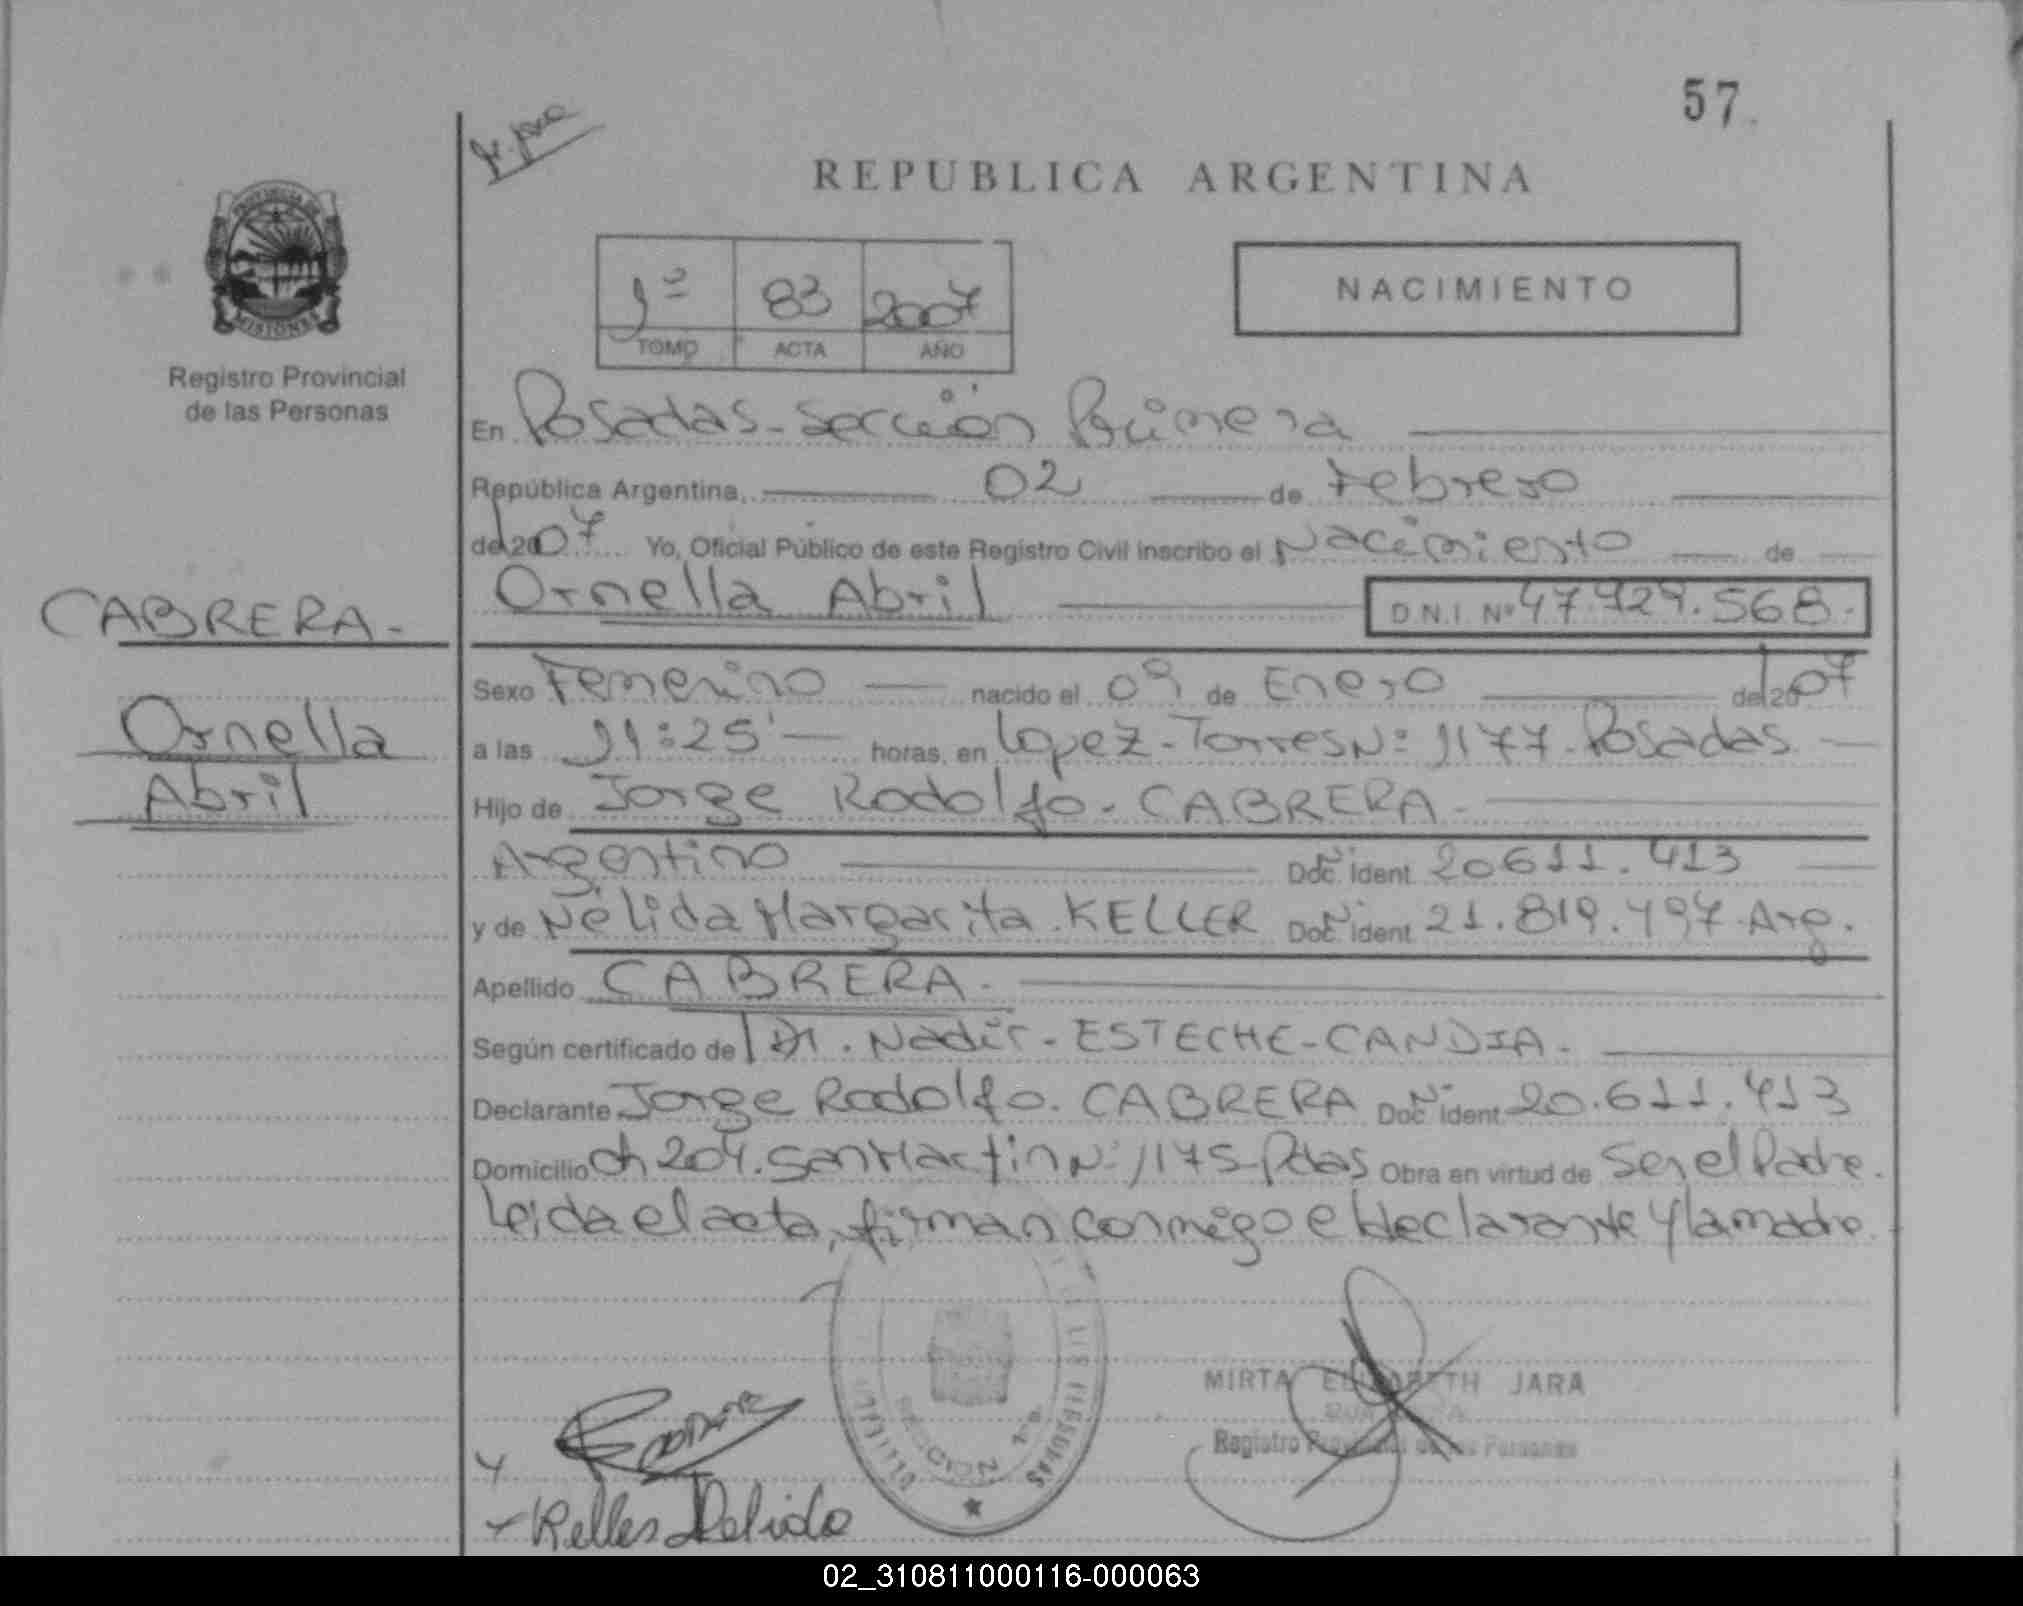 57
REPUBLICA ARGENTINA
PROVINCIA DE
MISIONES
Registro Provincial
de las Personas
1º 83 2007
TOMO ACTA AÑO
NACIMIENTO
En Posadas - Sección Primera
República Argentina, 02 de Febrero
de 2007 Yo, Oficial Público de este Registro Civil inscribo el Nacimiento de
Ornella Abril D.N.I. Nº 47.429.568.-
CABRERA.-
Ornella
Abril
Sexo Femenino nacido el 09 de Enero de 2007
a las 11:25' horas, en Lopez - Torres Nº 1177 - Posadas
Hijo de Jorge Rodolfo - CABRERA -
Argentino Doc. ident 20611.413
y de Nélida Margarita . KELLER Doc. ident 21.819.497 Arg.
Apellido CABRERA.-
Según certificado de Dr. Nadir - ESTECHE - CANDIA.-
Declarante Jorge Rodolfo. CABRERA Doc. ident 20.611.413
Domicilio ch 204. San Martin Nº 1175 - Pdas Obra en virtud de Ser el Padre.
Leida el acta, firman conmigo el declarante y la madre.
MIRTA ELIZABETH JARA
Registro Provincial de las Personas
SECCION 1ra
Keller Nelida
02_310811000116-000063